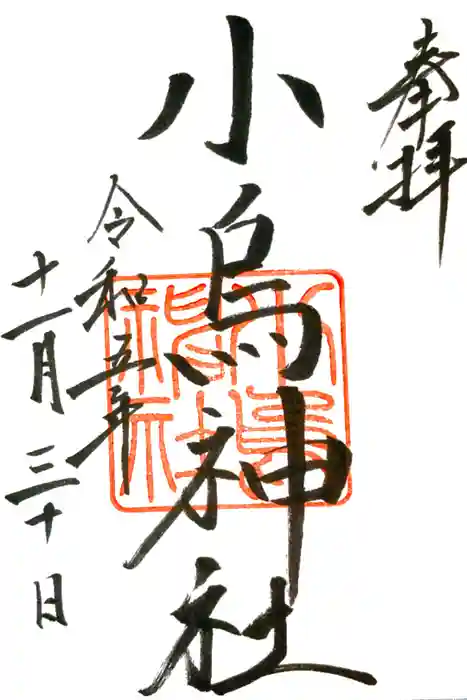 奉拝
小烏神社
小烏
神社
令和五年
十一月三十日